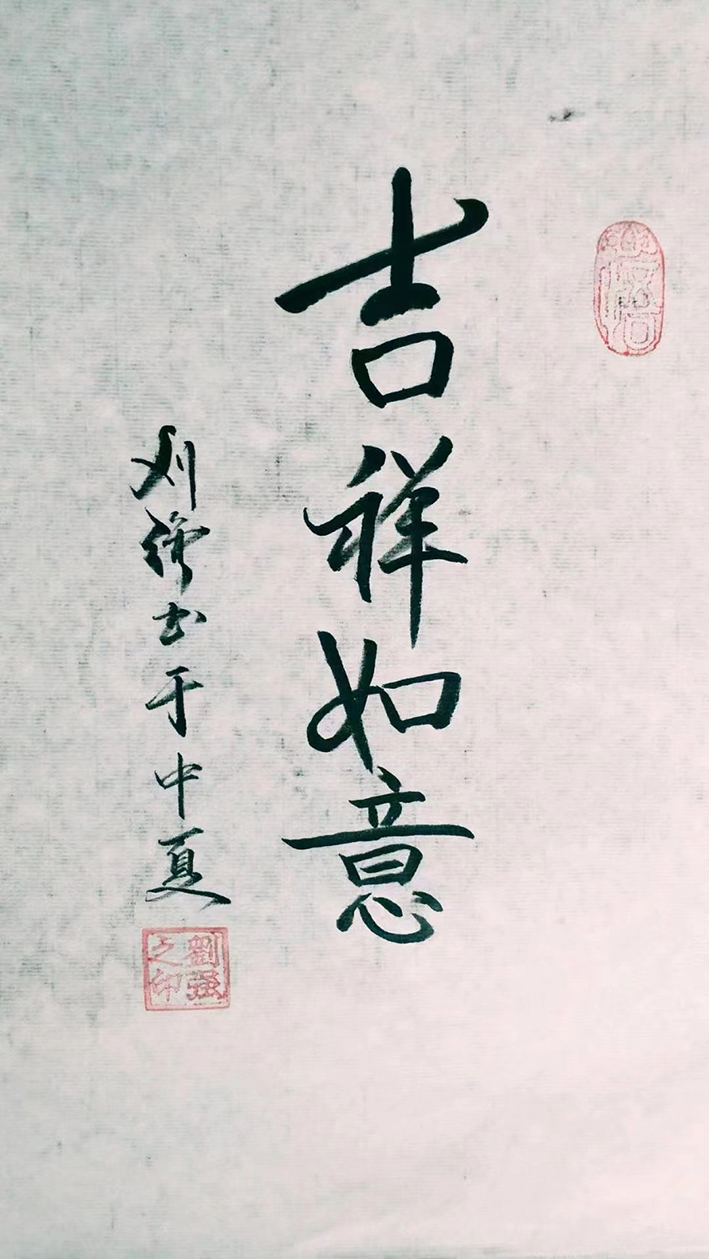 吉祥如意
刘强书于中夏
劉强
之印